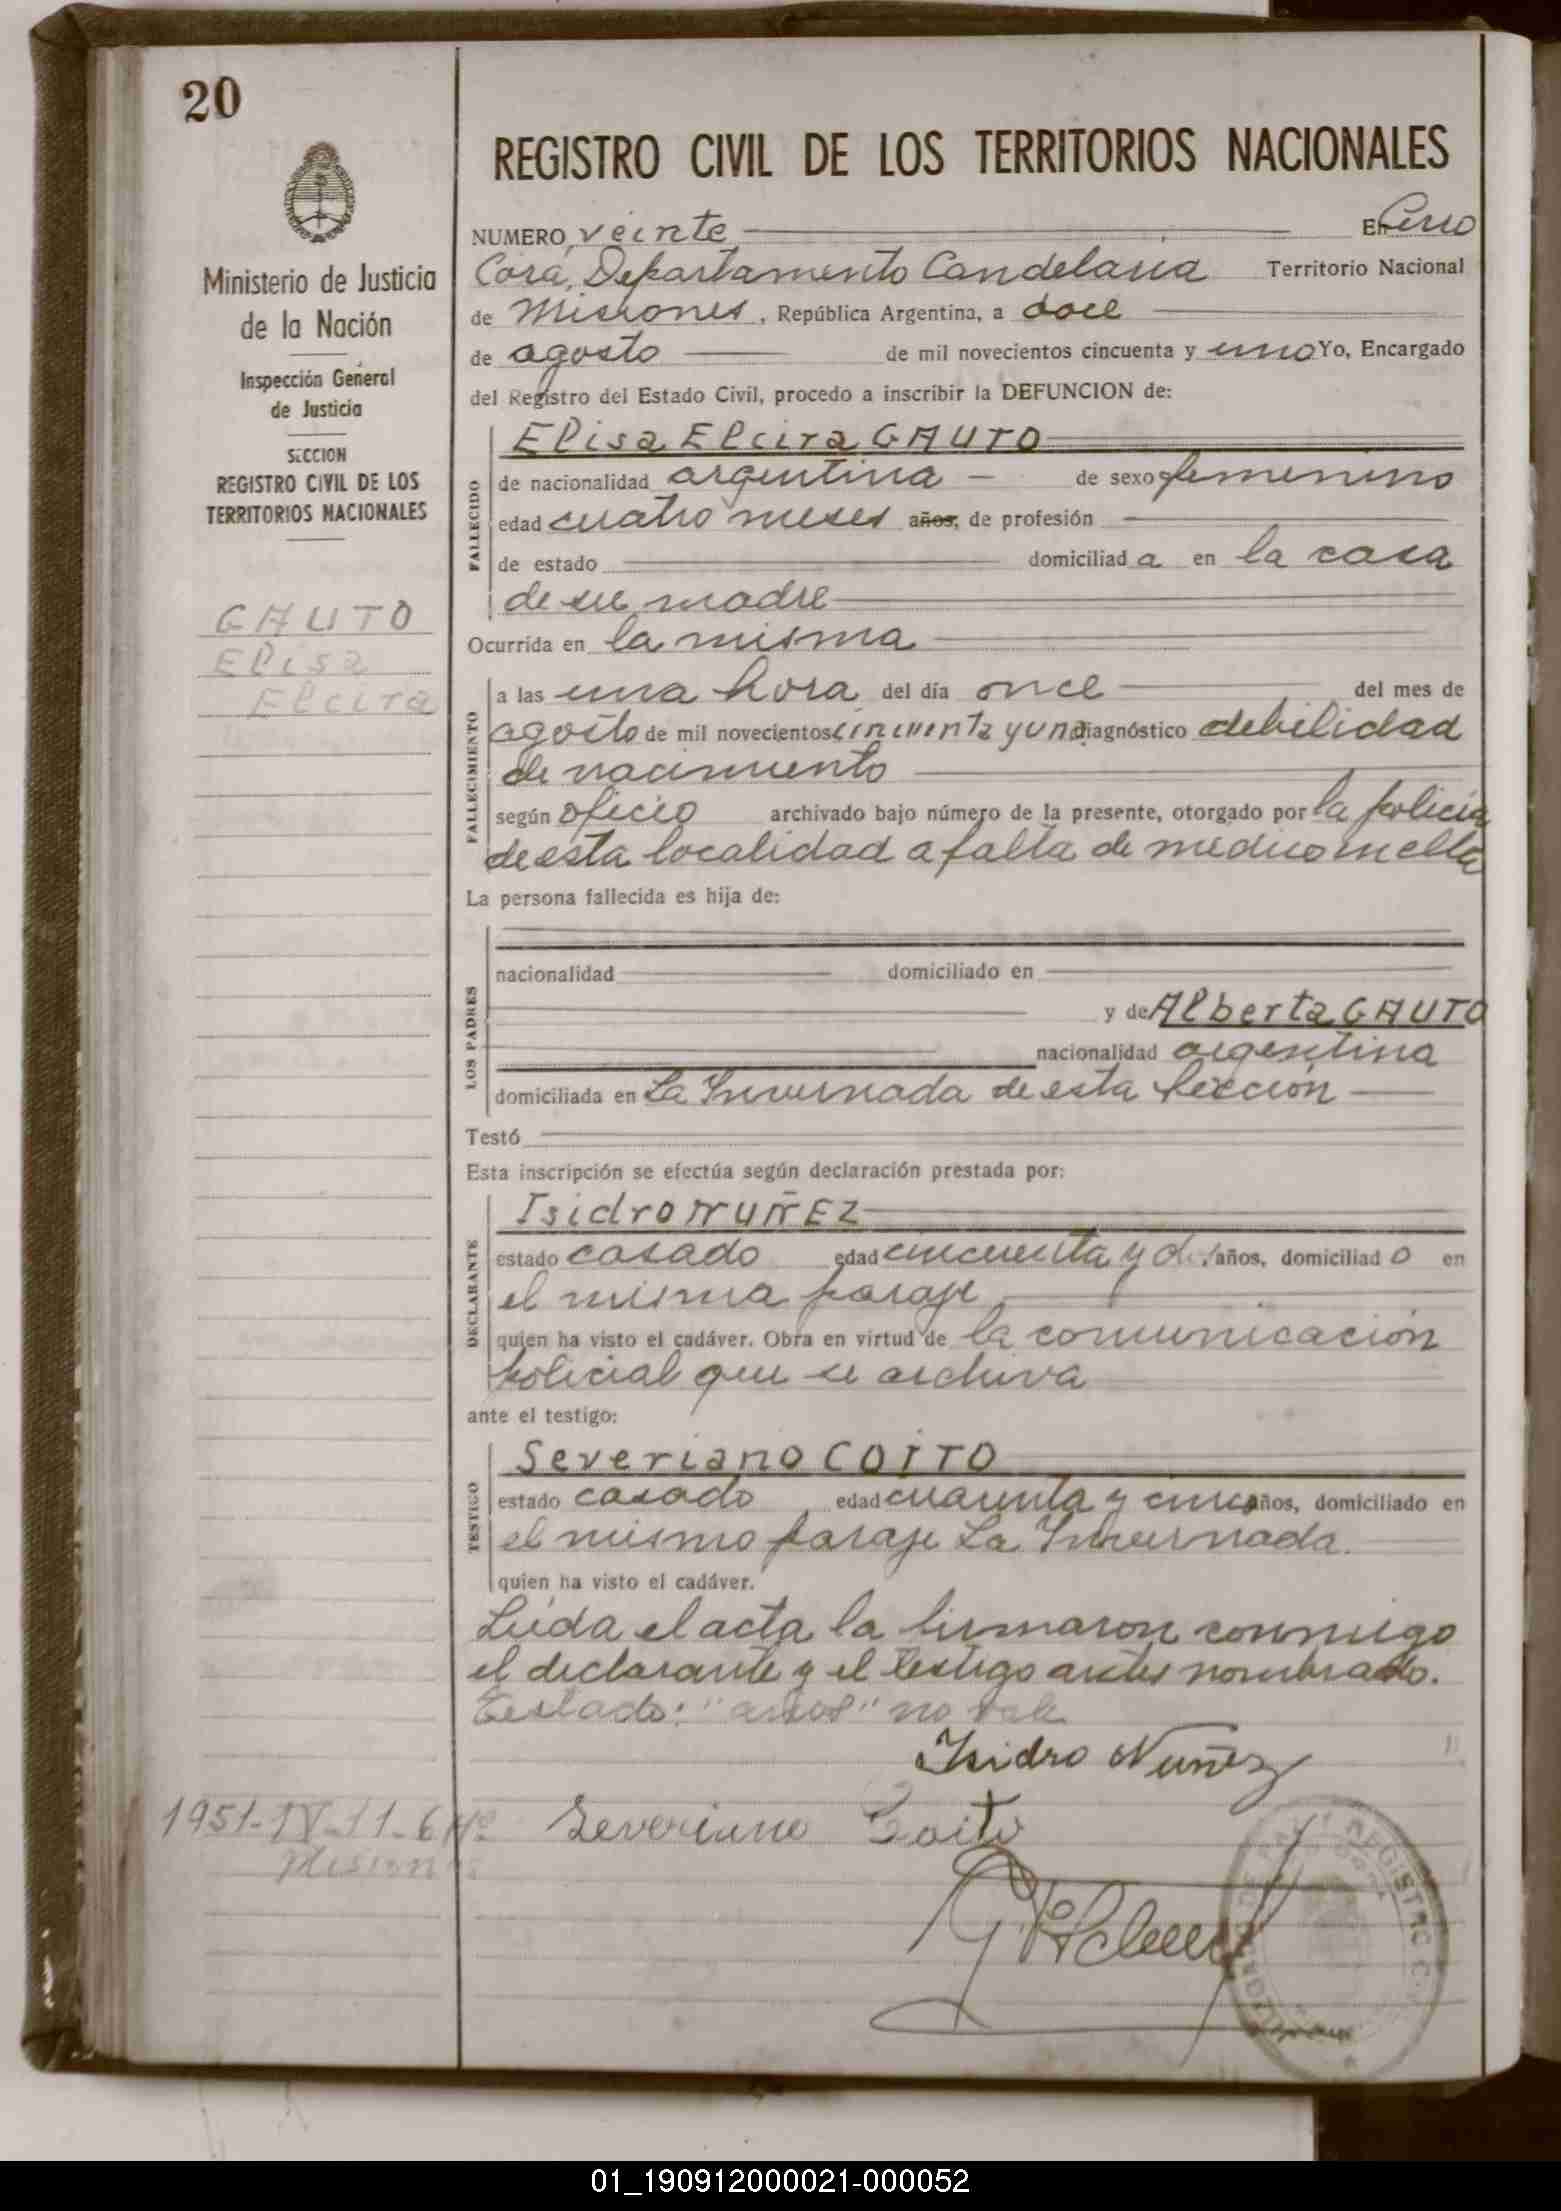 20
Ministerio de Justicia
de la Nación
Inspección General
de Justicia
SECCION
REGISTRO CIVIL DE LOS
TERRITORIOS NACIONALES
GAUTO
Elisa
Elcira
1951-IV-11-6 Hs
Misiones
REGISTRO CIVIL DE LOS TERRITORIOS NACIONALES
NUMERO veinte En Cerro
Corá, Departamento Candelaria Territorio Nacional
de Misiones, República Argentina, a doce
de agosto de mil novecientos cincuenta y uno Yo, Encargado
del Registro del Estado Civil, procedo a inscribir la DEFUNCION de:
FALLECIDO
Elisa Elcira GAUTO
de nacionalidad argentina de sexo femenino
edad cuatro meses años, de profesión
de estado domiciliad a en la casa
de su madre
Ocurrida en la misma
FALLECIMIENTO
a las una hora del día once del mes de
agosto de mil novecientos cincuenta y uno diagnóstico debilidad
de nacimiento
según oficio archivado bajo número de la presente, otorgado por la policía
de esta localidad a falta de medico en ella
La persona fallecida es hija de:
LOS PADRES
nacionalidad domiciliado en
y de Alberta GAUTO
nacionalidad argentina
domiciliada en La Invernada de esta sección
Testó
Esta inscripción se efectúa según declaración prestada por:
DECLARANTE
Isidro NUÑEZ
estado casado edad cincuenta y años, domiciliad o en
el misma paraje
quien ha visto el cadáver. Obra en virtud de la comunicación
policial que se archiva
ante el testigo:
TESTIGO
Severiano COITO
estado casado edad cuarenta y cinco años, domiciliado en
el mismo paraje La Invernada.
quien ha visto el cadáver.
Leida el acta la firmaron conmigo
el declarante y el testigo antes nombrado.
Testado: "años" no vale
Isidro Nuñez
Severiano Coito
REGISTRO
01_190912000021-000052